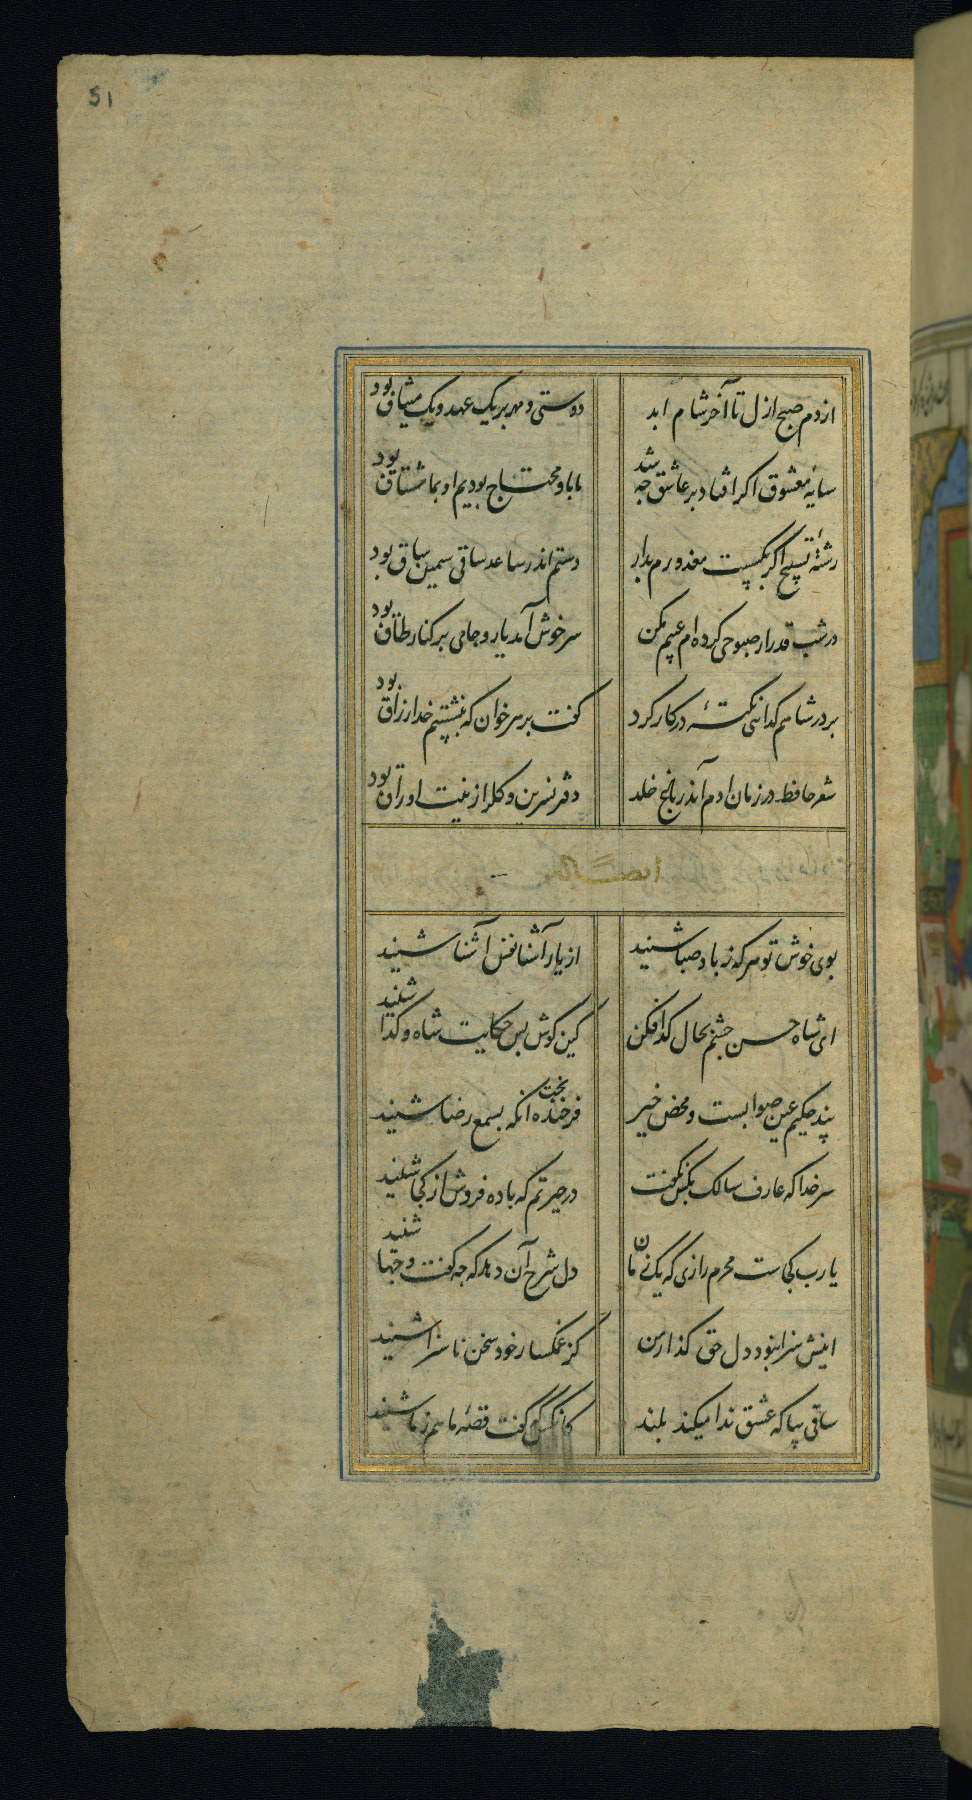 51
از دم صبح ازل تا آخر شام ابد
دوستی و مهر بر یک عهد و یک میثاق بود
سایهٔ معشوق اکر افتاد بر عاشق چه شد
ما باو محتاج بودیم او بما مشتاق بود
رشتهٔ تسبیح اکر بکسست معذورم بدار
دستم اندر ساعد ساقی سیمین ساق بود
در شب قدر ار صبوحی کرده‌ام عیبم مکن
سرخوش آمد یار و جامی بر کنار طاق بود
بر در شاهم کدائی نکتهٔ در کار کرد
کفت بر سر خوان که بنشستم خدا رزاق بود
شعر حافظ در زمان ادم اندر باغ خلد
دفتر نسرین و کل را زینت اوراق بود
ایضا له
بوی خوش تو هر که ز باد صبا شنید
از یار آشنا نفس آشنا شنید
ای شاه حسن چشم بحال کدا فکن
کین کوش بس حکایت شاه و کدا شنید
پند حکیم عین صوابست و محض خیر
فرخنده بخت انکه بسمع رضا شنید
سر خدا که عارف سالک بکس نکفت
در حیرتم که باده فروش از کجا شنید
یا رب کجاست محرم رازی که یک زمان
دل شرح آن دهد که چه کفت و چها شنید
اینش سزا نبود دل حق کذار من
کز غمکسار خود سخن ناسزا شنید
ساقی بیا که عشق ندا میکند بلند
کانکس که کفت قصهٔ ما هم ز ما شنید